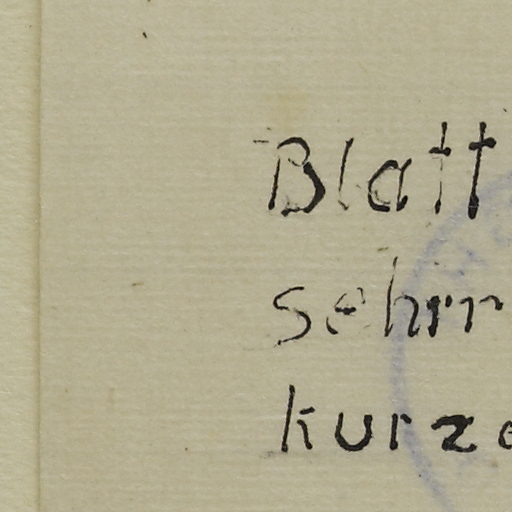 Blatt
sehr
kurze